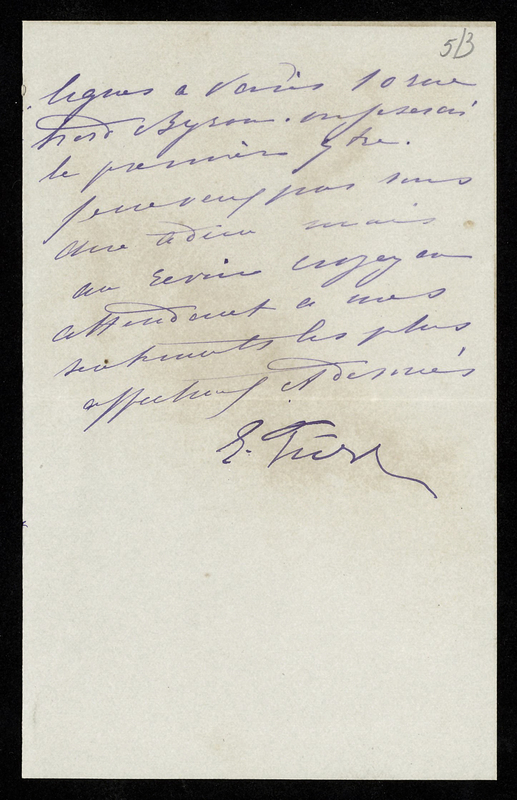 5/3
lignes a Paris 10 rue
Lord Byron. on serai
le premier
je ne veux pas vous
dire adieu mais
au revoir croyez en
attendant a mes
sentiments les plus
affectueux et devoués
E.